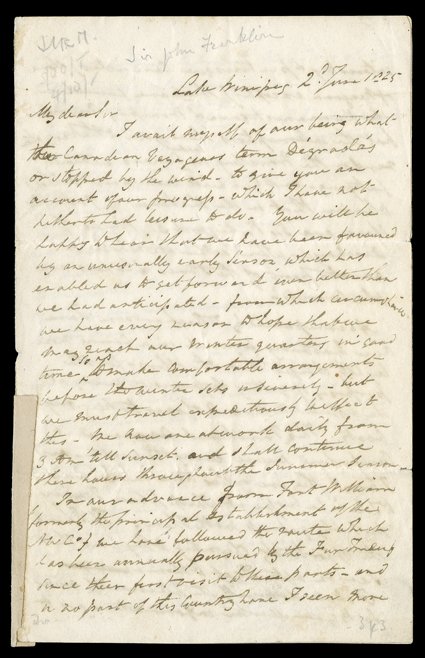 Sir John Franklin
Lake Winipeg 2d June 1825
My dear Sir
I avail myself of our being what
the Canadian Voyageurs term Dégradés
or stopped by the wind - to give you an
account of our progress - which I have not
hitherto had leisure to do - You will be
happy to hear that we have been favoured
by an unusually early season which has
enabled us to get forward even better than
we had anticipated - from which circumstance
we have every reason to hope that we
may reach our Winter quarters in good
time so as to make comfortable arrangements
before the winter sets in severely - but
we must travel expeditiously to effect
this - We now are at work daily from
3 AM till Sunset, and shall continue
these hours throughout the Summer Season -
In our advance from Fort William
formerly the principal Establishment of the
NWCo, we have followed the route which
has been annually pursued by the Fur Traders
since their first visit to these parts - and
in no part of this Country have I seen more
343